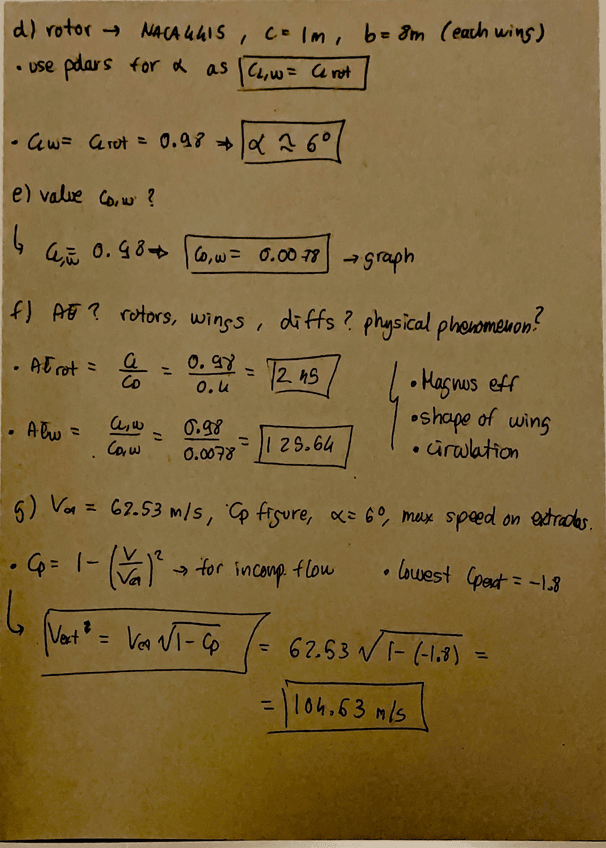 d) rotor → NACA4415, c = 1m, b = 8m (each wing)
• use polars for α as CL,w = CL rot
• CLw = CL rot = 0.98 → α ≈ 6°
e) value CD,w ?
↳ CL,w = 0.98 → CD,w = 0.0078 → graph
f) AE ? rotors, wings, diffs? physical phenomenon?
• AE rot = CL/CD = 0.98/0.4 = 2.45
• Magnus eff
• shape of wing
• circulation
• AEw = CL,w/CD,w = 0.98/0.0078 = 125.64
g) V∞ = 62.53 m/s, Cp figure, α = 6°, max speed on extrados.
• Cp = 1 - (V/V∞)² → for incomp. flow • lowest Cpext = -1.8
↳ Vext = V∞ √1 - Cp = 62.53 √1 - (-1.8) =
= 104.63 m/s